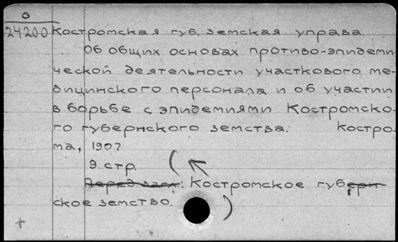 б
24200 Костромская губ. земская управа.
Об общих основах противо-эпидеми
ческой деятельности участкового ме-
дицинского персонала и об участии
в борьбе с эпидемиями Костромско-
го губернского земства. Костро-
ма, 190?
9 стр.
(Перед загл: Костромское губерн
ское земство.)
+